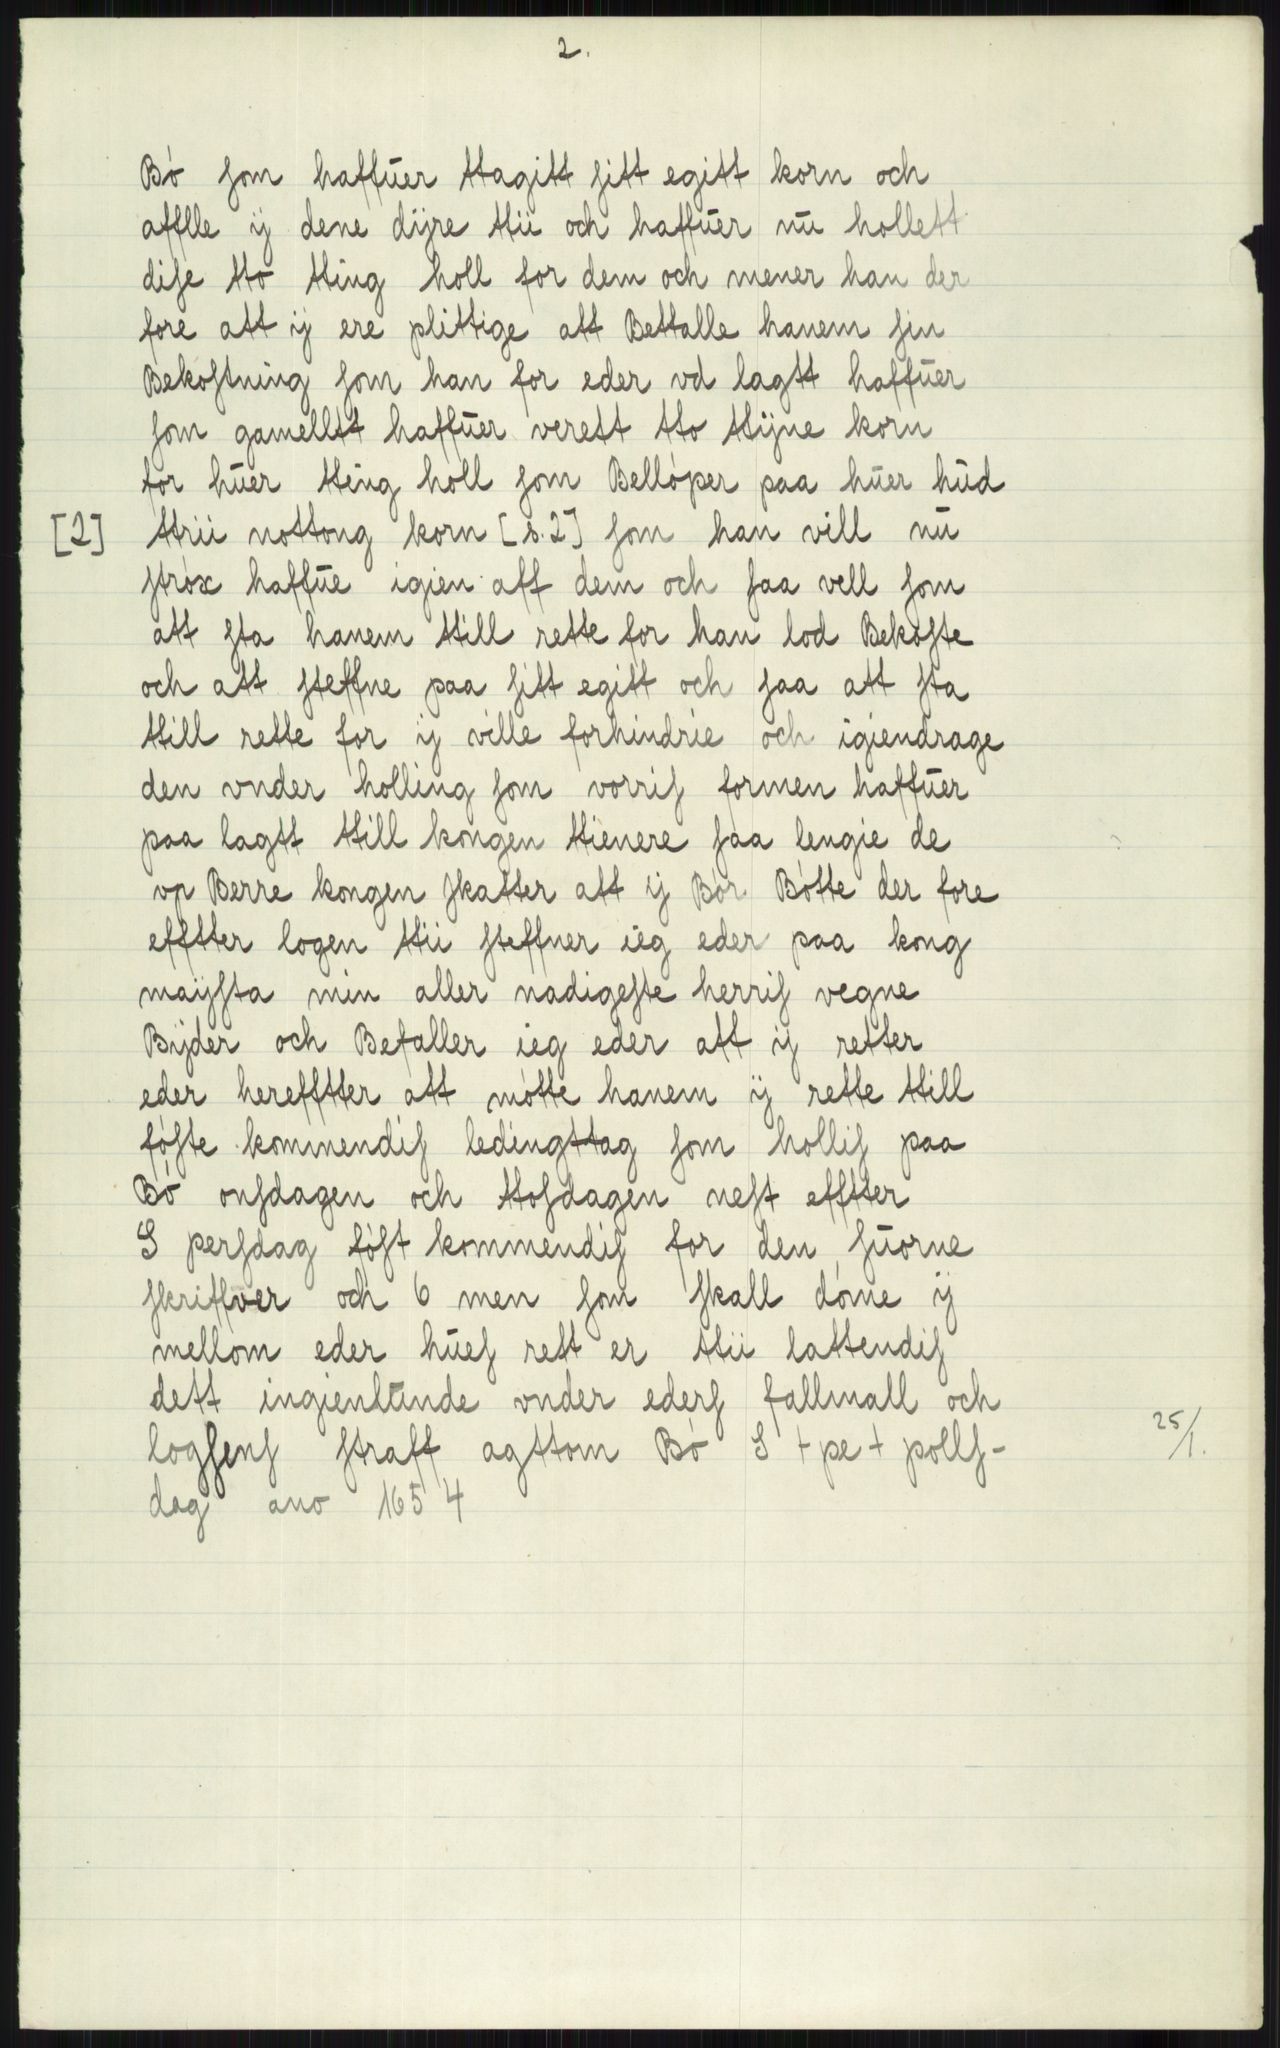 2.
Bó som haffūer ttagitt sitt egitt korn och
afflle ij dene dÿre ttii och haffūer nū hollett
dise tto tting holl for dem och mener han der
fore att ij ere plittige att Bettalle hanem sin
Bekostning som han for eder vd lagtt haffūer
som gamelltt haffūer verett tto ttÿne korn
for hūer tting holl som Bellóper paa hūer hūd
[2] ttrii nottong korn [s. 2] som han vill nū
stróx haffūe igien aff dem och saa vell som
att sta hanem ttill rette for han lod Bekoste
och att steffne paa sitt egitt och saa att sta
ttill rette for ij ville forhindrie och igiendrage
den vnder holling som vorris formen haffūer
paa lagtt ttill kongen ttienere saa lengie de
vp Berre kongen skatter att ij Bór Bótte der fore
efftter logen ttii steffner ieg eder paa kong
maÿsta min aller nadigeste herris vegne
Bÿder och Befaller ieg eder att ij retter
eder herefftter att mótte hanem ij rette ttill
fóste kommendis ledingttag som hollis paa
Bó onsdagen och ttosdagen nest efftter
S persdag fóst kommendis for den suorne
skriffver och 6 men som skall dóme ij
mellom eder hūes rett er ttii lattendis
dett ingienlūnde vnder eders fallmall och
logsens straff agttom Bó S + pe + polls-
dag ano 1654
25/1.